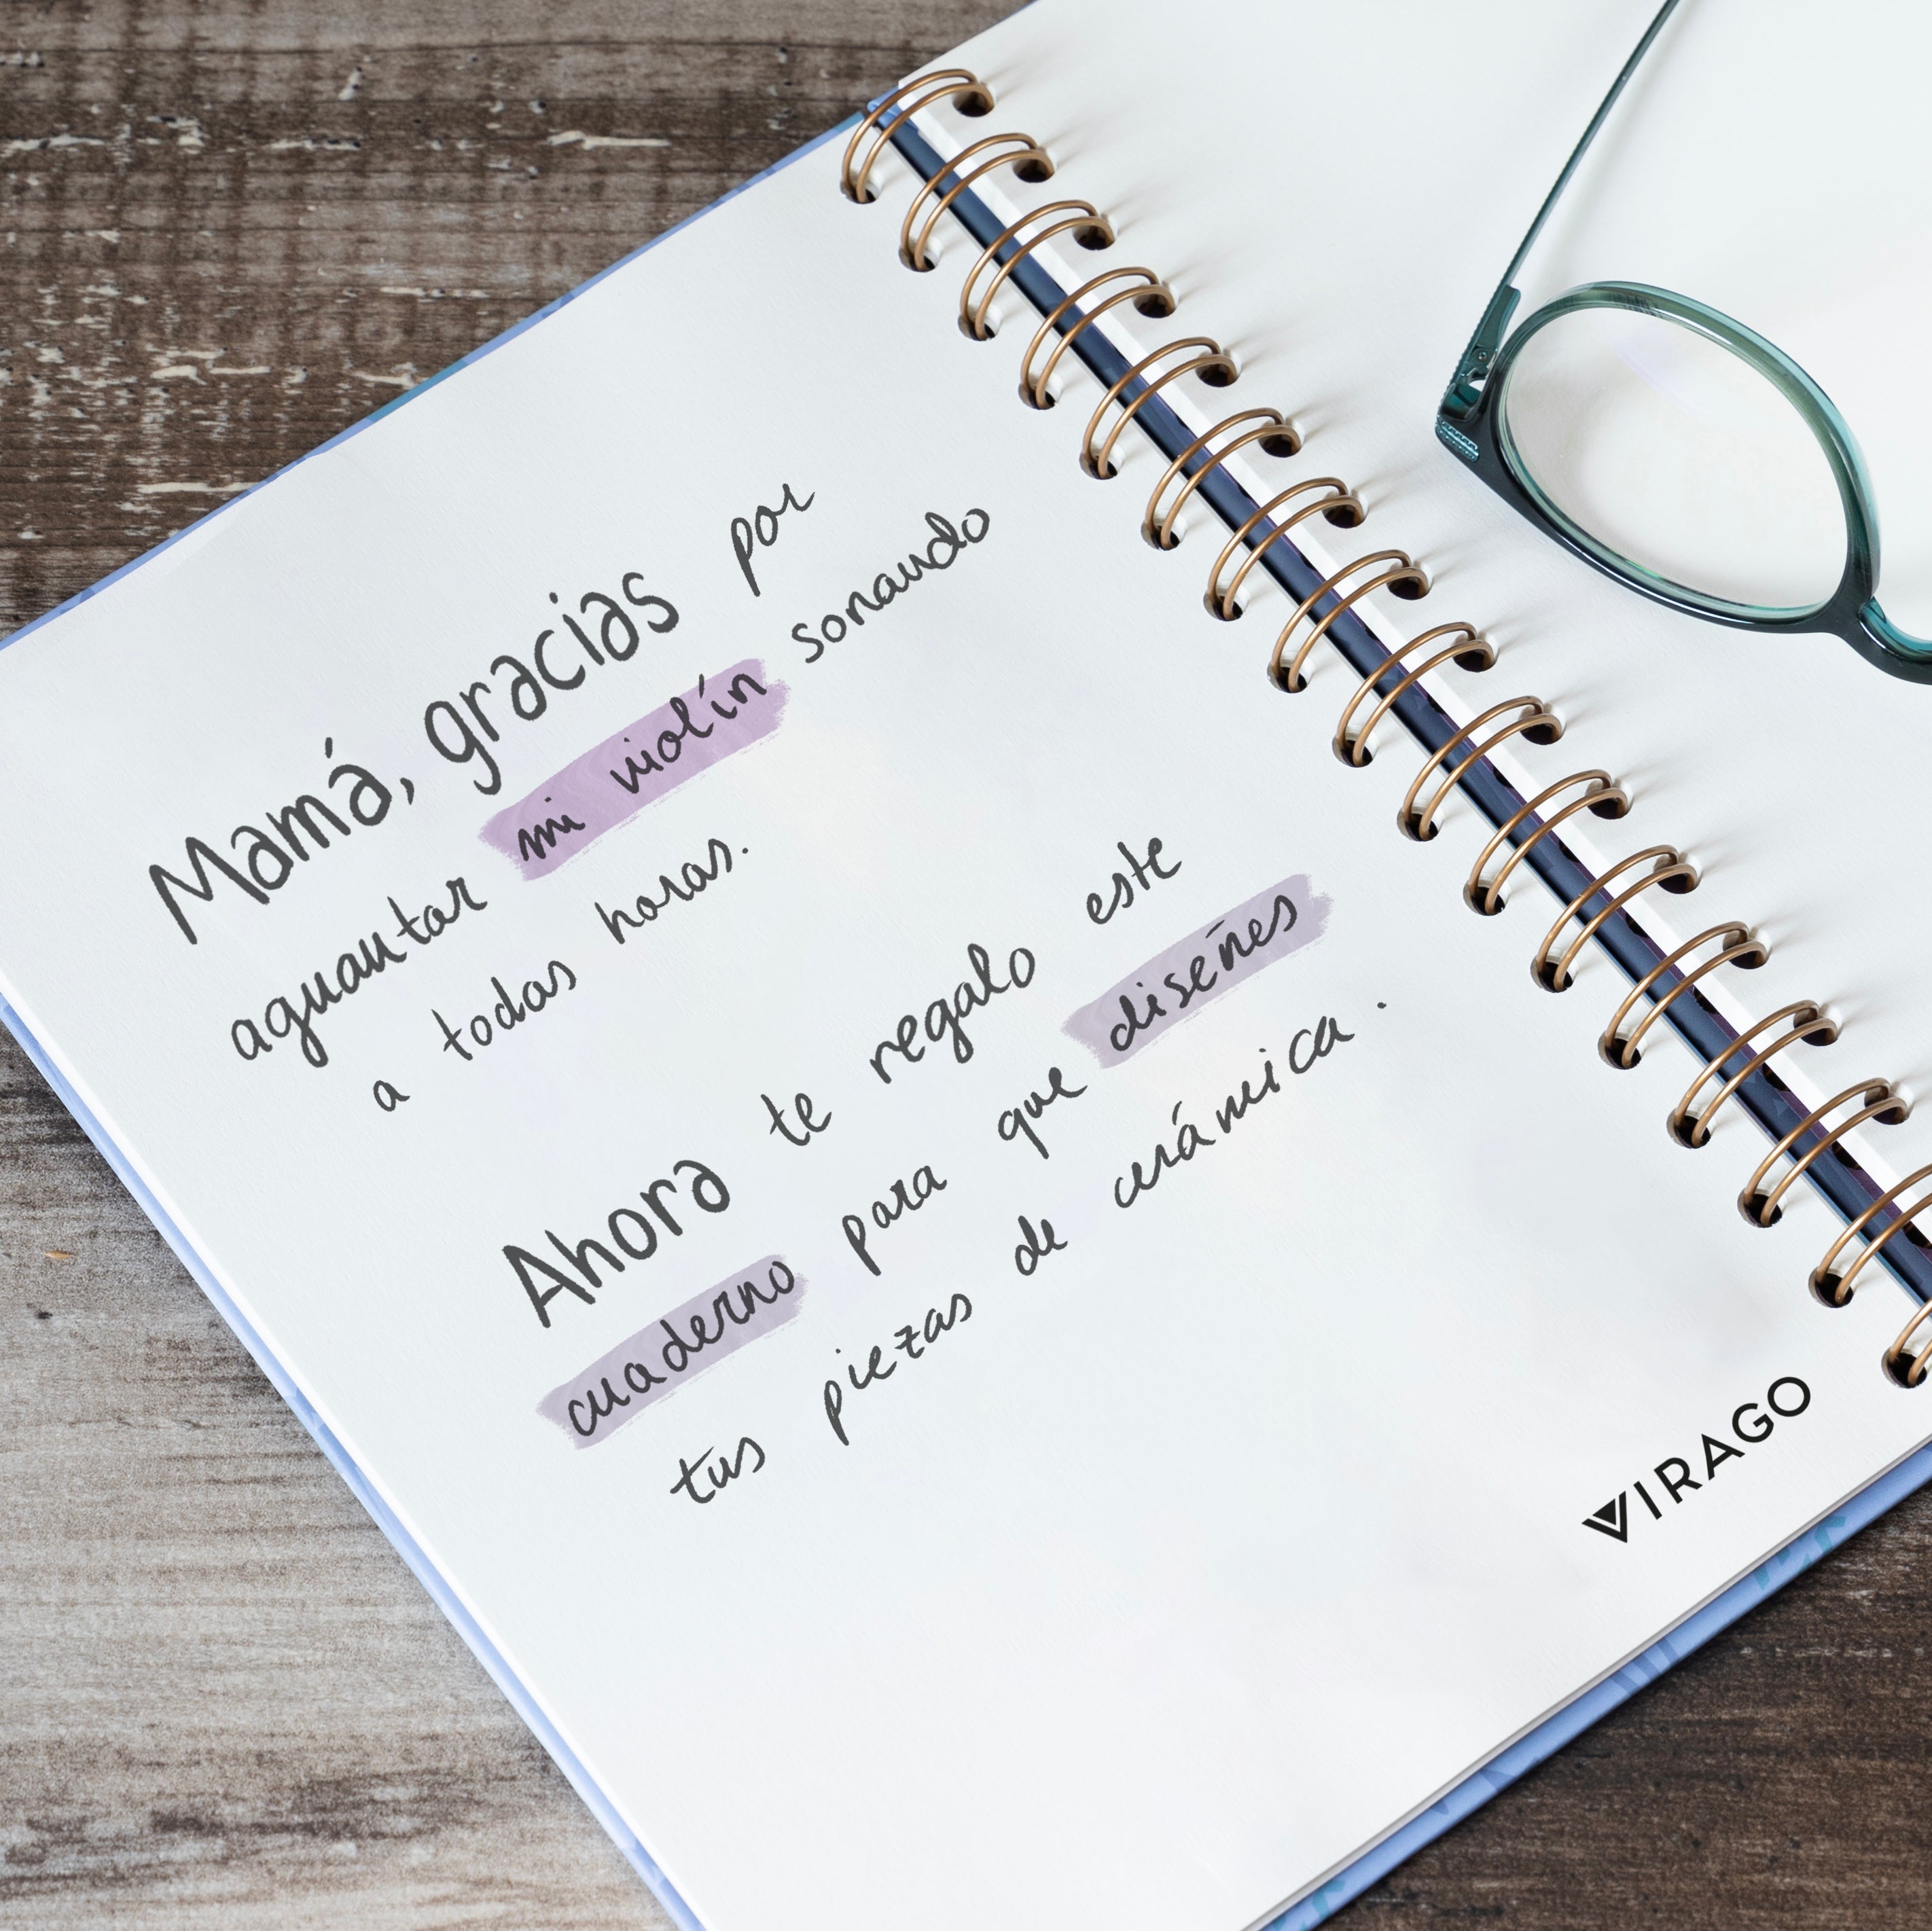 Mamá, gracias por
aguantar mi violín sonando
a todas horas.
Ahora te regalo este
cuaderno para que diseñes
tus piezas de cerámica.
VIRAGO